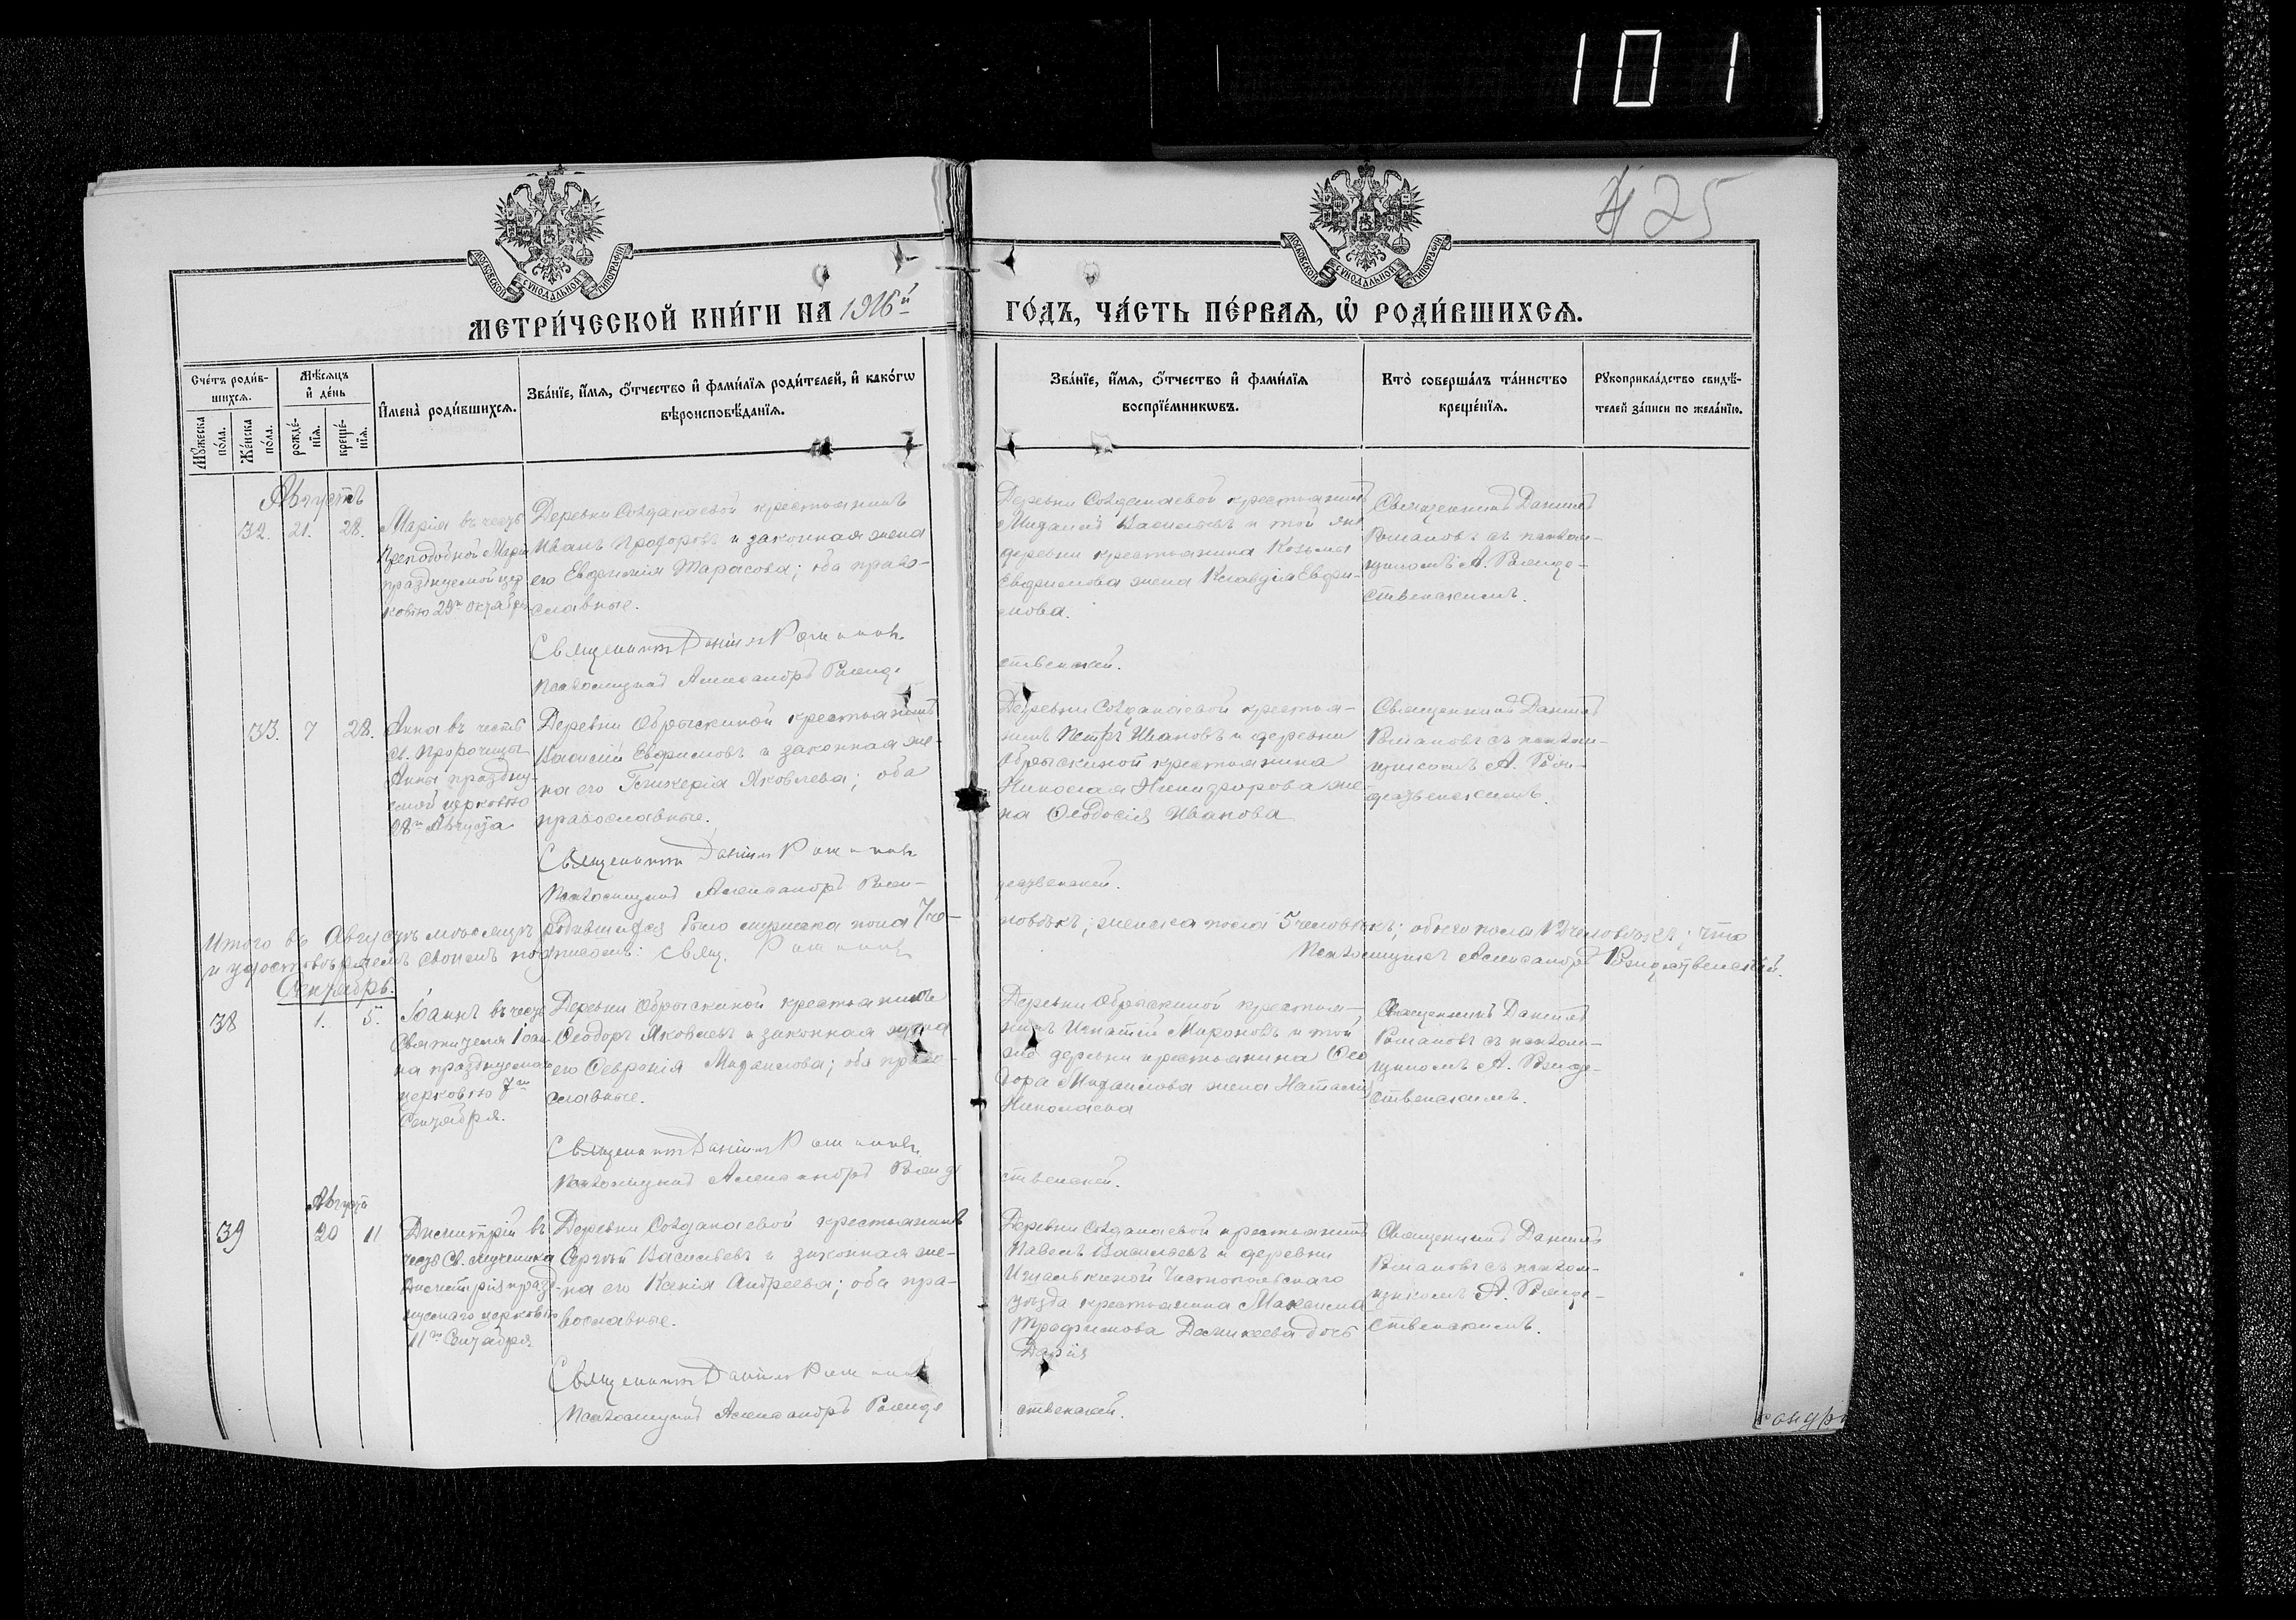 101
25
МОСКОВСКОЙ СѴНОДАЛЬНОЙ ТИПОГРАФІИ
МОСКОВСКОЙ СѴНОДАЛЬНОЙ ТИПОГРАФІИ
МЕТРИ́ЧЕСКОЙ КНИ́ГИ НА 1916й
ГО́ДЪ, ЧА́СТЬ ПЕ́РВАЯ, Ѿ РОДИ́ВШИХСЯ.
Сче́тъ роди́в-
шихся.
Мѣ́сяцъ
и҆ де́нь
Мꙋ́жеска
по́ла.
Же́нска
по́ла.
рожде́-
нїя.
креще́-
нїя.
И҆мена̀ роди́вшихся.
Зва́нїе, и҆́мя, ѻ҆́тчество и҆ фами́лїя роди́телей, и҆ како́гѡ
вѣроисповѣ́данїя.
Зва́нїе, и҆́мя, ѻ҆́тчество и҆ фами́лїя
воспрїе́мникѡвъ.
Кто̀ соверша́лъ та́инство
креще́нїя.
Рꙋкоприкла́дство свидѣ́-
телей за́писи по жела́нїю.
Августъ
32. 21. 28.
Марія въ честь
Преподобной Маріи
празднуемой цер
ковію 29го Октября
Деревни крестьянинъ
Иванъ Прохоровъ и законная жена
его Евфимія Тарасова; оба право-
славные.
Священникъ Даніилъ Романовъ
Псаломщикъ Александръ Рожде
Деревни крестьянинъ
Михаилъ Васильевъ и той же
деревни крестьянина Козьмы
Евфимова жена Клавдія Евфи-
мова.
ственскій.
Священникъ Даніилъ
Романовъ съ псалом-
щикомъ А. Рожде-
ственскимъ.
33. 7 28.
Анна въ честь
Св. Пророчицы
Анны празднуе-
мой церковію
28го Августа
Деревни Обрыскиной крестьянинъ
Василій Евфимовъ и законная же-
на его Гликерія Яковлева; оба
православные.
Священникъ Даніилъ Романовъ
Псаломщикъ Александръ Рож-
Деревни крестья-
нинъ Петръ Ивановъ и деревни
Обрыскиной крестьянина
Николая Никифорова же-
на Ѳеодосія Иванова
дественскій.
Священникъ Даніилъ
Романовъ съ псалом-
щикомъ А. Рож-
дественскимъ.
Итого въ Августѣ мѣсяцѣ родившихся было мужска пола 7 че-
ловѣкъ; женска пола 5 человѣкъ; обоего пола 12 человѣкъ; что
и удостовѣряемъ своимъ подписомъ: Свящ. Романовъ
Псаломщикъ Александръ Рождественскій.
Сентябрь.
38 1. 5.
Іоаннъ въ честь
Святителя Іоан-
на празднуемаго
церковію 7го
Сентября.
Деревни Обрыскиной крестьянинъ
Ѳеодоръ Яковлевъ и законная жена
его Февронія Михаилова; оба право-
славные.
Священникъ Даніилъ Романовъ
Псаломщикъ Александръ Рожде
Деревни Обрыскиной крестья-
нинъ Игнатій Мироновъ и той
же деревни крестьянина Ѳео
дора Михаилова жена Наталія
Николаева
ственскій.
Священникъ Даніилъ
Романовъ съ псалом-
щикомъ А. Рожде-
ственскимъ.
Августа
39 20 11
Димитрій въ
честь Св. мученика
Димитрія празд-
нуемаго церковію
11го Сентября.
Деревни крестьянинъ
Сергѣй Васильевъ и законная же-
на его Ксенія Андреева; оба пра-
вославные.
Священникъ Даніилъ Романовъ
Псаломщикъ Александръ Рожде
Деревни крестьянинъ
Павелъ Васильевъ и деревни
Чистопольскаго
уѣзда крестьянина Максима
Трофимова дочь
Дарія
ственскій.
Священникъ Даніилъ
Романовъ съ псалом-
щикомъ А. Рожде-
ственскимъ.